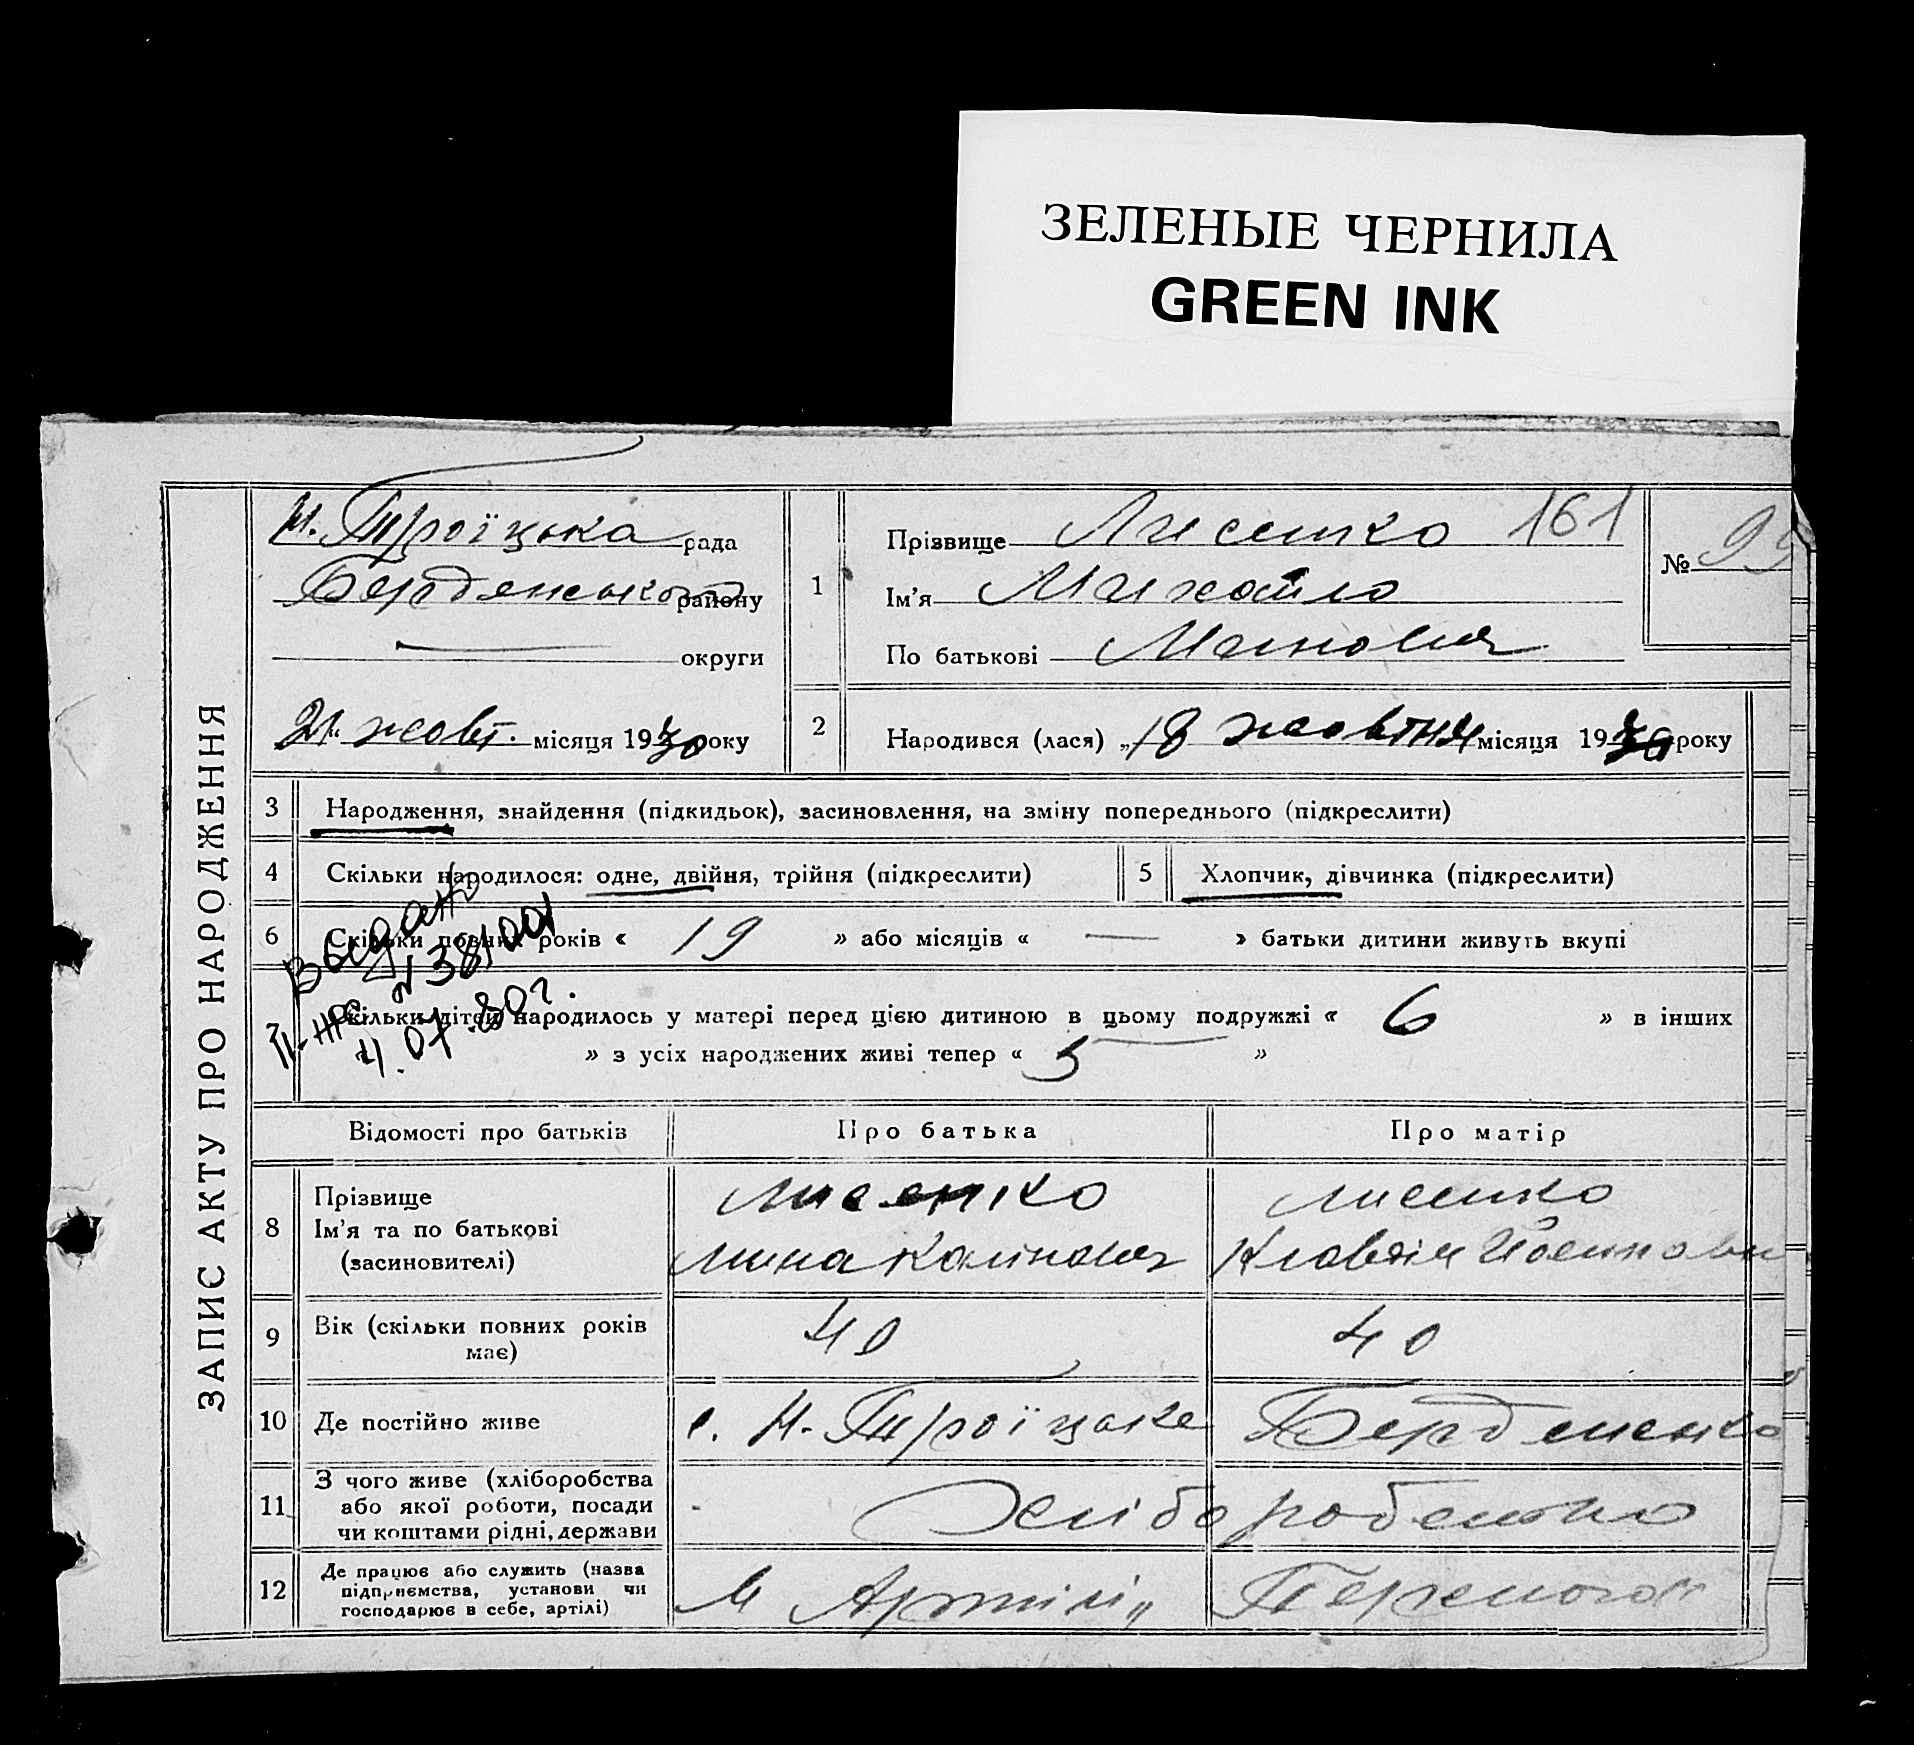 ЗЕЛЕНЫЕ ЧЕРНИЛА
GREEN INK
ЗАПИС АКТУ ПРО НАРОДЖЕННЯ
Н. Троїцька рада
Бердянського району
— округи
21 жовт. місяця 1930 року
1
Прізвище Лисенко 161
Ім'я Михайло
По батькові Минович
№ 99
2
Народився (лася) „18 жовтня місяця 1930 року
3 Народження, знайдення (підкидьок), засиновлення, на зміну попереднього (підкреслити)
4 Скільки народилося: одне, двійня, трійня (підкреслити)
5 Хлопчик, дівчинка (підкреслити)
6 Скільки повних років « 19 » або місяців « — » батьки дитини живуть вкупі
Выдано
№ 381001
4.07.80г.
7 Скільки дітей народилось у матері перед цією дитиною в цьому подружжі « 6 » в інших
» з усіх народжених живі тепер « 5 »
Відомості про батьків Про батька Про матір
8
Прізвище
Ім'я та по батькові
(засиновителі)
Лисенко
Мина
Лисенко
9
Вік (скільки повних років
має)
40 40
10 Де постійно живе с. Н-Троїцьке
11
З чого живе (хліборобства
або якої роботи, посади
чи коштами рідні, держави
Хліборобство
12
Де працює або служить (назва
підприємства, установи чи
господарює в себе, артілі)
Артілі „